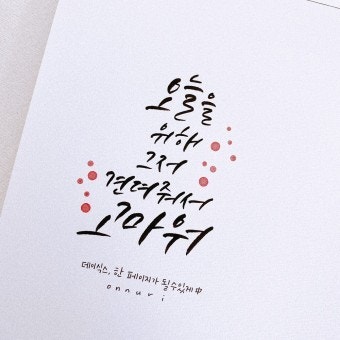 오늘을
위해
그저
견뎌줘서
고마워
데이식스, 한 페이지가 될 수 있게 中
onnuri